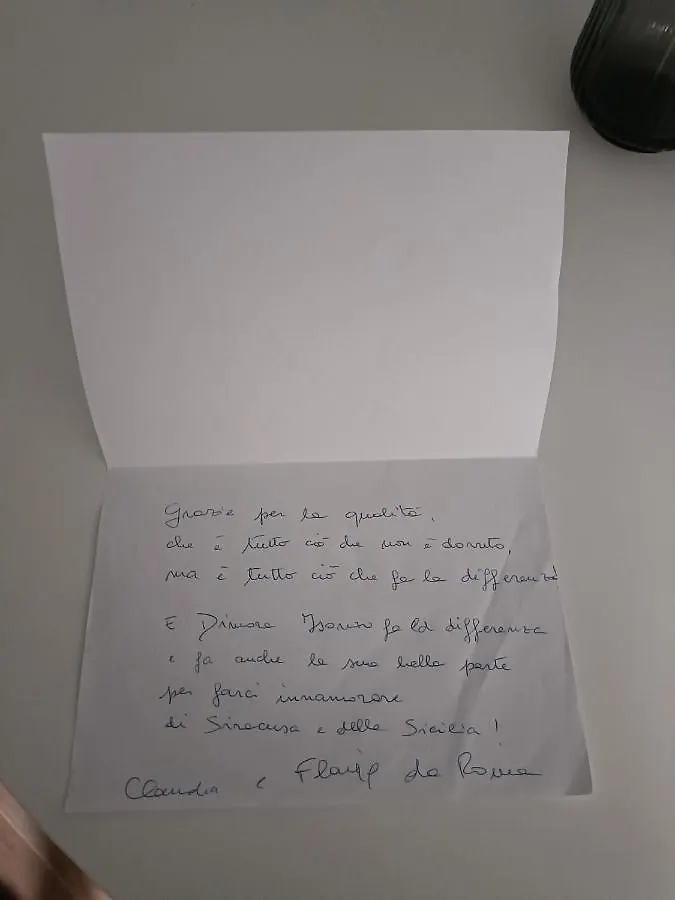 Grazie per la qualità,
che è tutto ciò che non è dovuto,
ma è tutto ciò che fa la differenza!
E Dimora fa la differenza
e fa anche la sua bella parte
per farci innamorare
di Siracusa e della Sicilia!
Claudia e da Roma